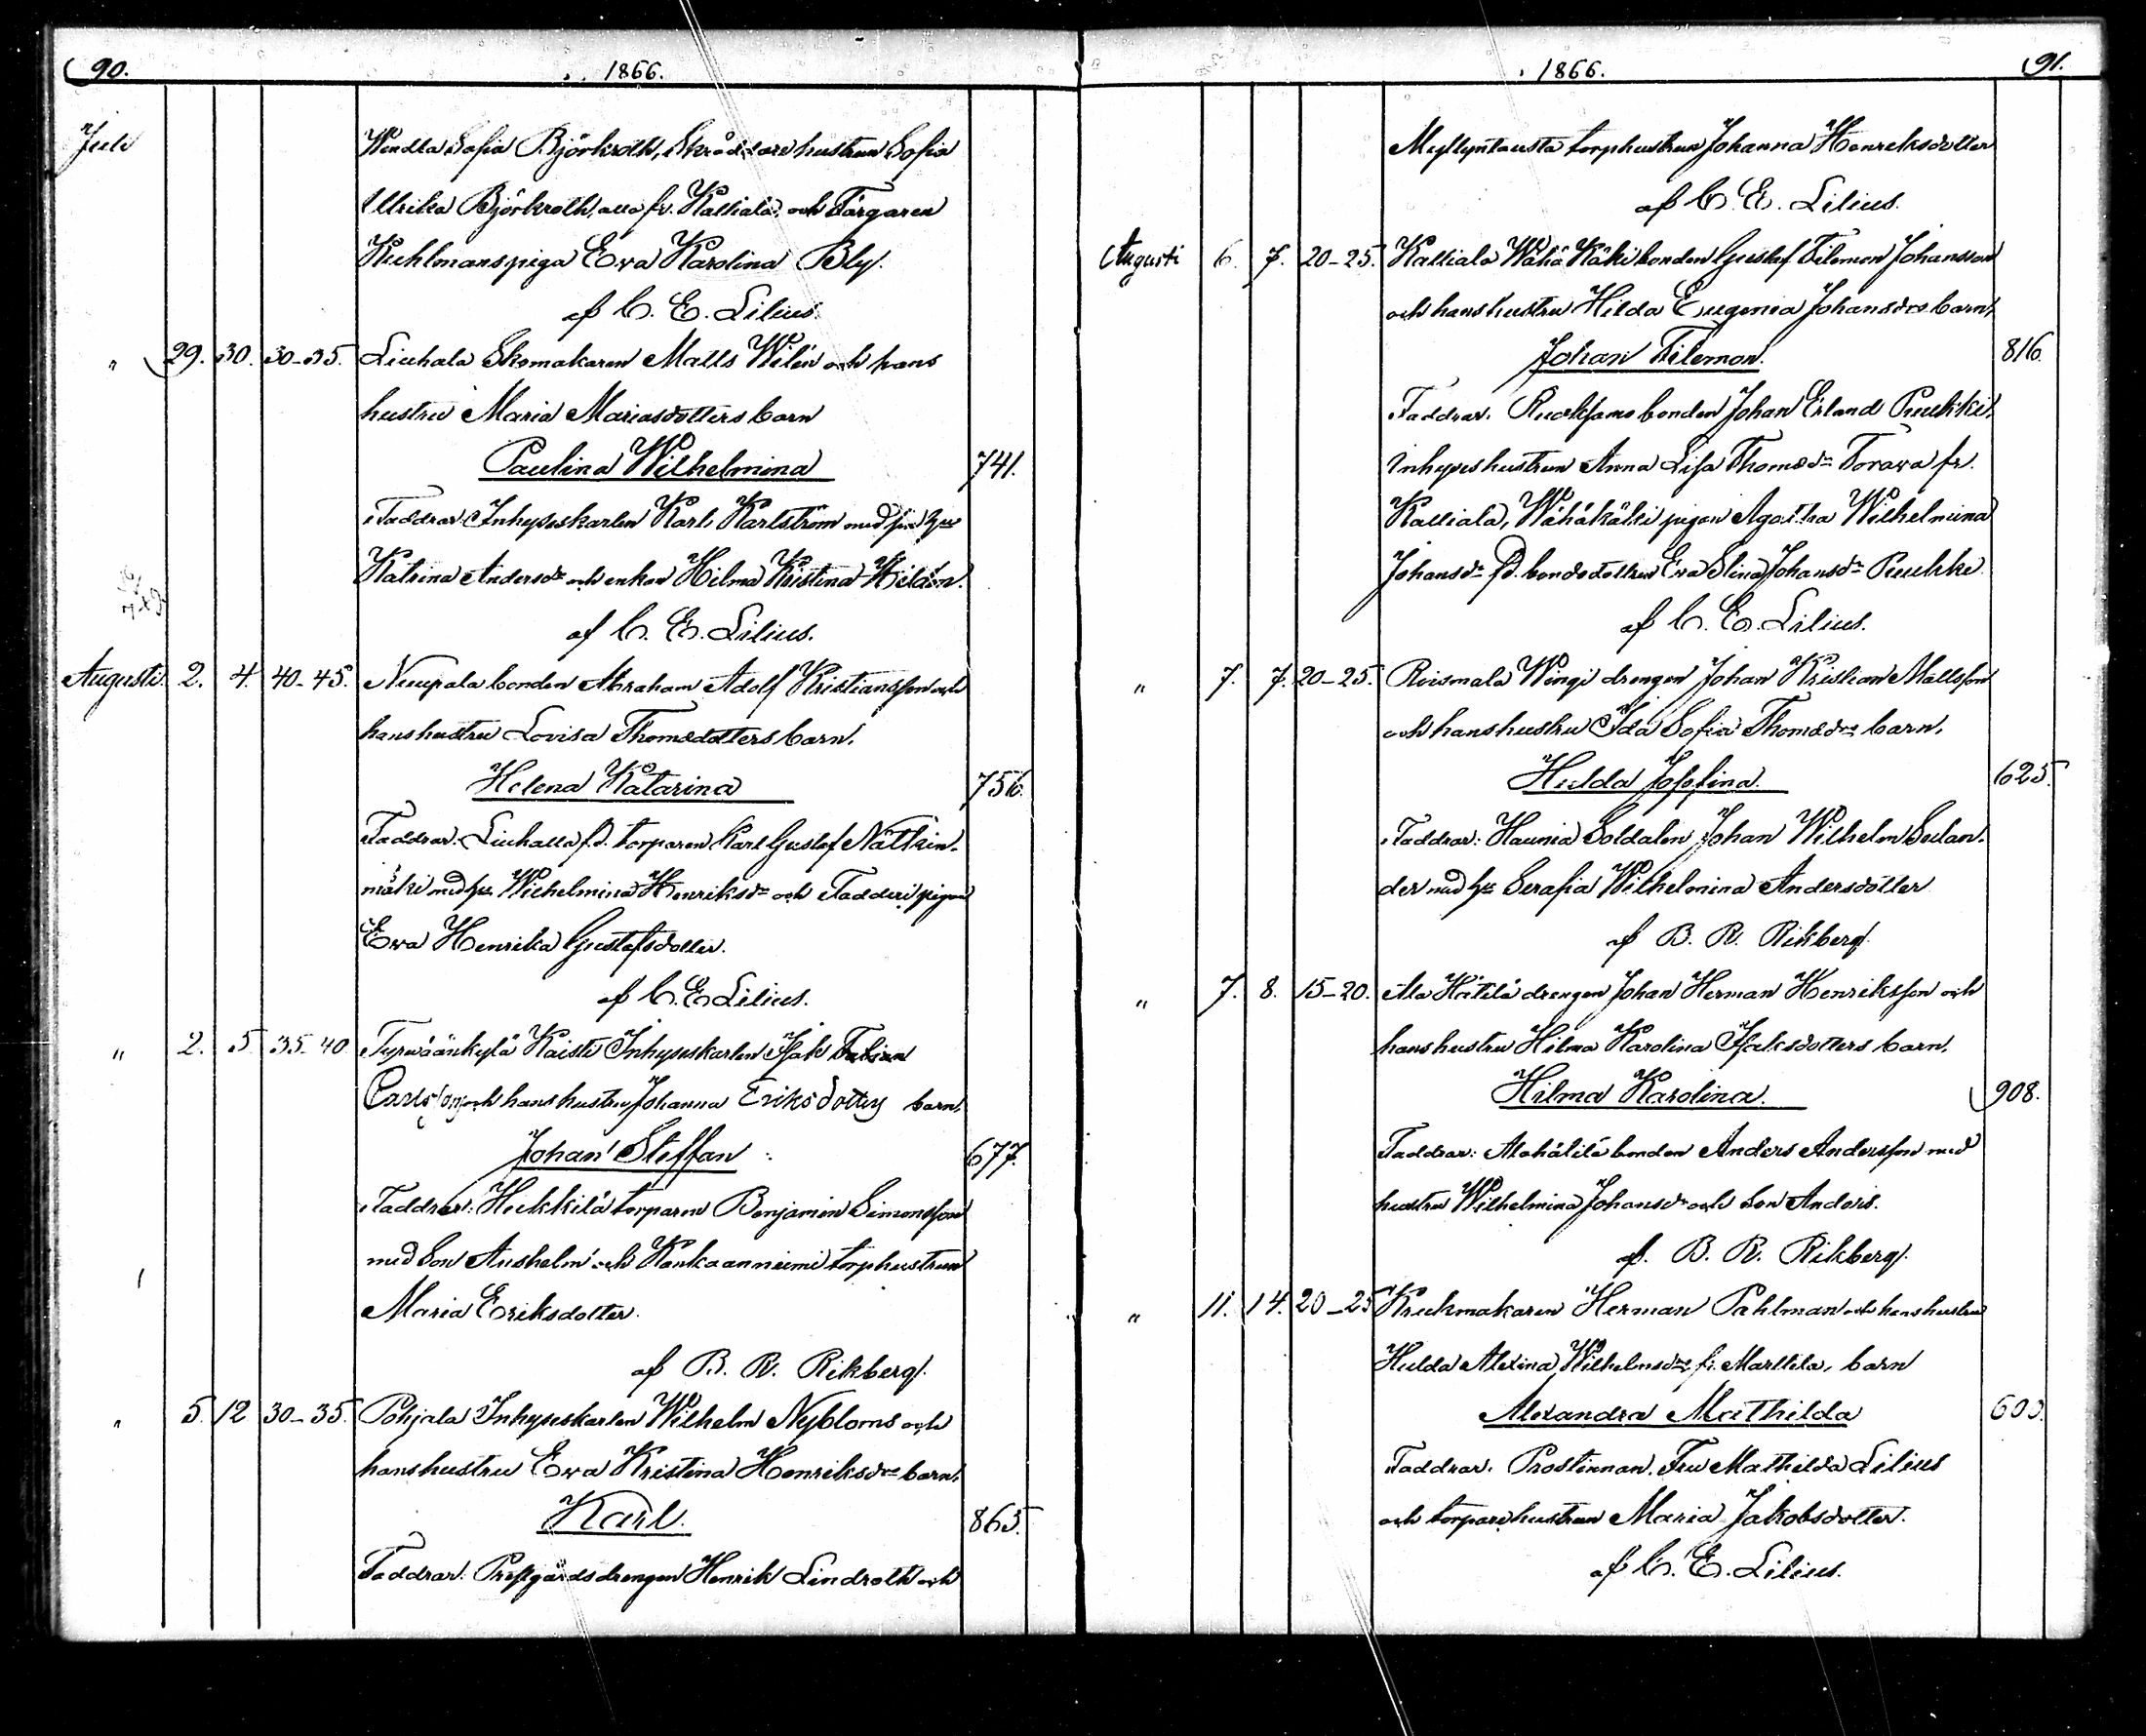 90.
1866.
Juli
Wendla Sofia Björkroth, Skräddare hustrun Sofia
Ulrika Björkroth, alla fr. Kalliala, och Färgaren
Kuhlmans piga Eva Karolina Bly.
af C. E. Lilius.
" 29. 30. 30-35. Liuhala Skomakaren Matts Wilén och hans
hustru Maria Mariasdotters barn
Paulina Wilhelmina 741.
Faddrar: Inhyseskarlen Karl Karlström med
Katrina Andersdr och enkan Hilma Kristina
af C. E. Lilius.
Augusti. 2. 4. 40-45. Nuupala bonden Abraham Adolf Kristiansson och
hans hustru Lovisa Thomsdotters barn,
Helena Katarina 756.
Faddrar: Liuhala f.d. torparen Karl Gustaf Nätkin-
mäki med hu Wilhelmina Henriksdr och pigan
Eva Henrika Gustafsdotter.
af C. E. Lilius.
" 2. 5. 35-40 Tyrwäänkylä Kaisti Inhyseskarlen Isak
Carlsson och hans hustru Johanna Eriksdotters barn,
Johan Steffan 677.
Faddrar: Heikkilä torparen Benjamin Simonsson
med Son Anshelm och Kankaanniemi torphustrun
Maria Eriksdotter.
af B. R. Rikberg.
" 5. 12 30-35. Pohjala Inhyseskarlen Wilhelm Nybloms och
hans hustru Ewa Kristina Henriksdrs barn,
Karl. 865.
Faddrar: Prestgårdsdrengen Henrik Lindroth och
1866.
91.
Myllyntausta torphustrun Johanna Henriksdotter
af C. E. Lilius.
Augusti 6. 7. 20-25. Kalliala Wähä Käki bonden Gustaf Filemon Johansson
och hans hustru Hilda Eugenia Johansdrs barn,
Johan Filemon. 816.
Faddrar: Ruoksamo bonden Johan Erland Ruukki,
Inhyseshustrun Anna Lisa Thomsdr Torawa fr.
Kalliala, Wähäkäki pigan Agatha Wilhelmina
Johansdr f.d. bondedottren Ewa Stina Johansdr
af C. E. Lilius.
" 7. 7. 20-25. Roismala Wingi drengen Johan Kristian Mattsson
och hans hustru Ida Sofia Thomsdrs barn,
Hulda Josefina. 625.
Faddrar: Haunia Soldaten Johan Wilhelm Sulan-
der med hu Serafia Wilhelmina Andersdotter
af B. R. Rikberg.
" 7. 8. 15-20. Ala Hätilä drengen Johan Herman Henriksson och
hans hustru Hilma Karolina Isaksdotters barn,
Hilma Karolina. 908.
Faddrar: Alahätilä bonden Anders Andersson med
hustru Wilhelmina Johansdr och Son Anders.
af. B. R. Rikberg.
" 11. 14. 20-25 Krukmakaren Herman Pahlman och hans hustru
Hulda Alexina Wilhelmsdrs fr. Marttila, barn
Alexandra Mathilda 600.
Faddrar: Prostinnan, Fru Mathilda Lilius
och torparehustrun Maria Jakobsdotter.
af C. E. Lilius.